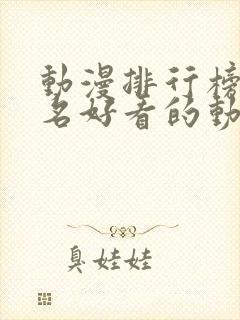 動漫排行榜
名好看的動
臭娃娃